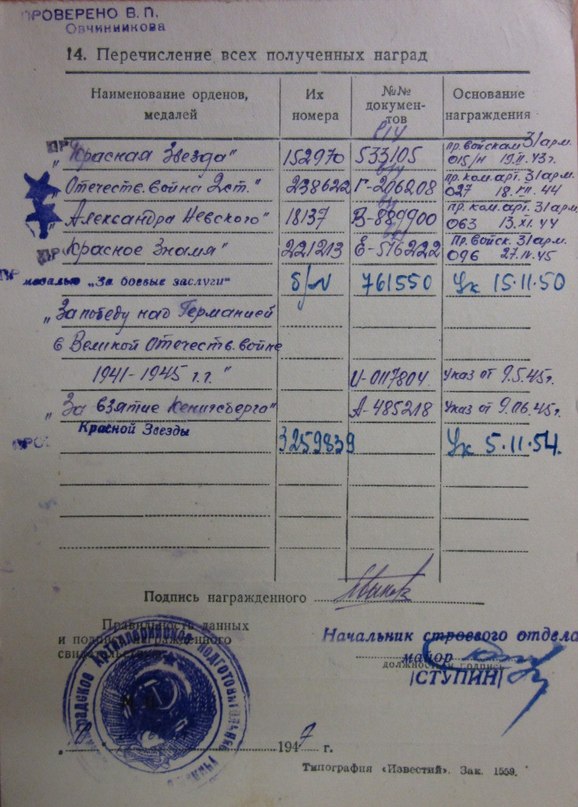 ПРОВЕРЕНО В.П.
Овчинникова
14. Перечисление всех полученных наград
Наименование орденов, медалей
Их номера
№№ докумен-тов
Основание награждения
„Красная Звезда" 152970 533105 пр. войскам 31 арм. 015/н 19.II.43г.
Отечеств. война 2 ст." 238622 Г-206208 пр. ком. арт. 31 арм. 027 18.VII.44
Александра Невского" 18137 В-889900 пр. ком. арт. 31 арм. 063 13.XI.44
Красное Знамя" 221213 Е-516222 Пр. войск. 31 арм. 096 27.IV.45
медалью „За боевые заслуги" б/н 761550 Ук 15.11.50
„За победу над Германией
в Великой Отечеств. войне
1941-1945 г.г." U-0117804 Указ от 9.5.45г.
„За взятие Кенигсберга" А-485218 Указ от 9.06.45г.
Красной Звезды 3259839 Ук 5.11.54.
Подпись награжденного
Правильность данных
и подписи награжденного
свидетельствую
Начальник строевого отдела
майор
должность и подпись
/СТУПИН/
1947 г.
Типография «Известий». Зак. 1539.